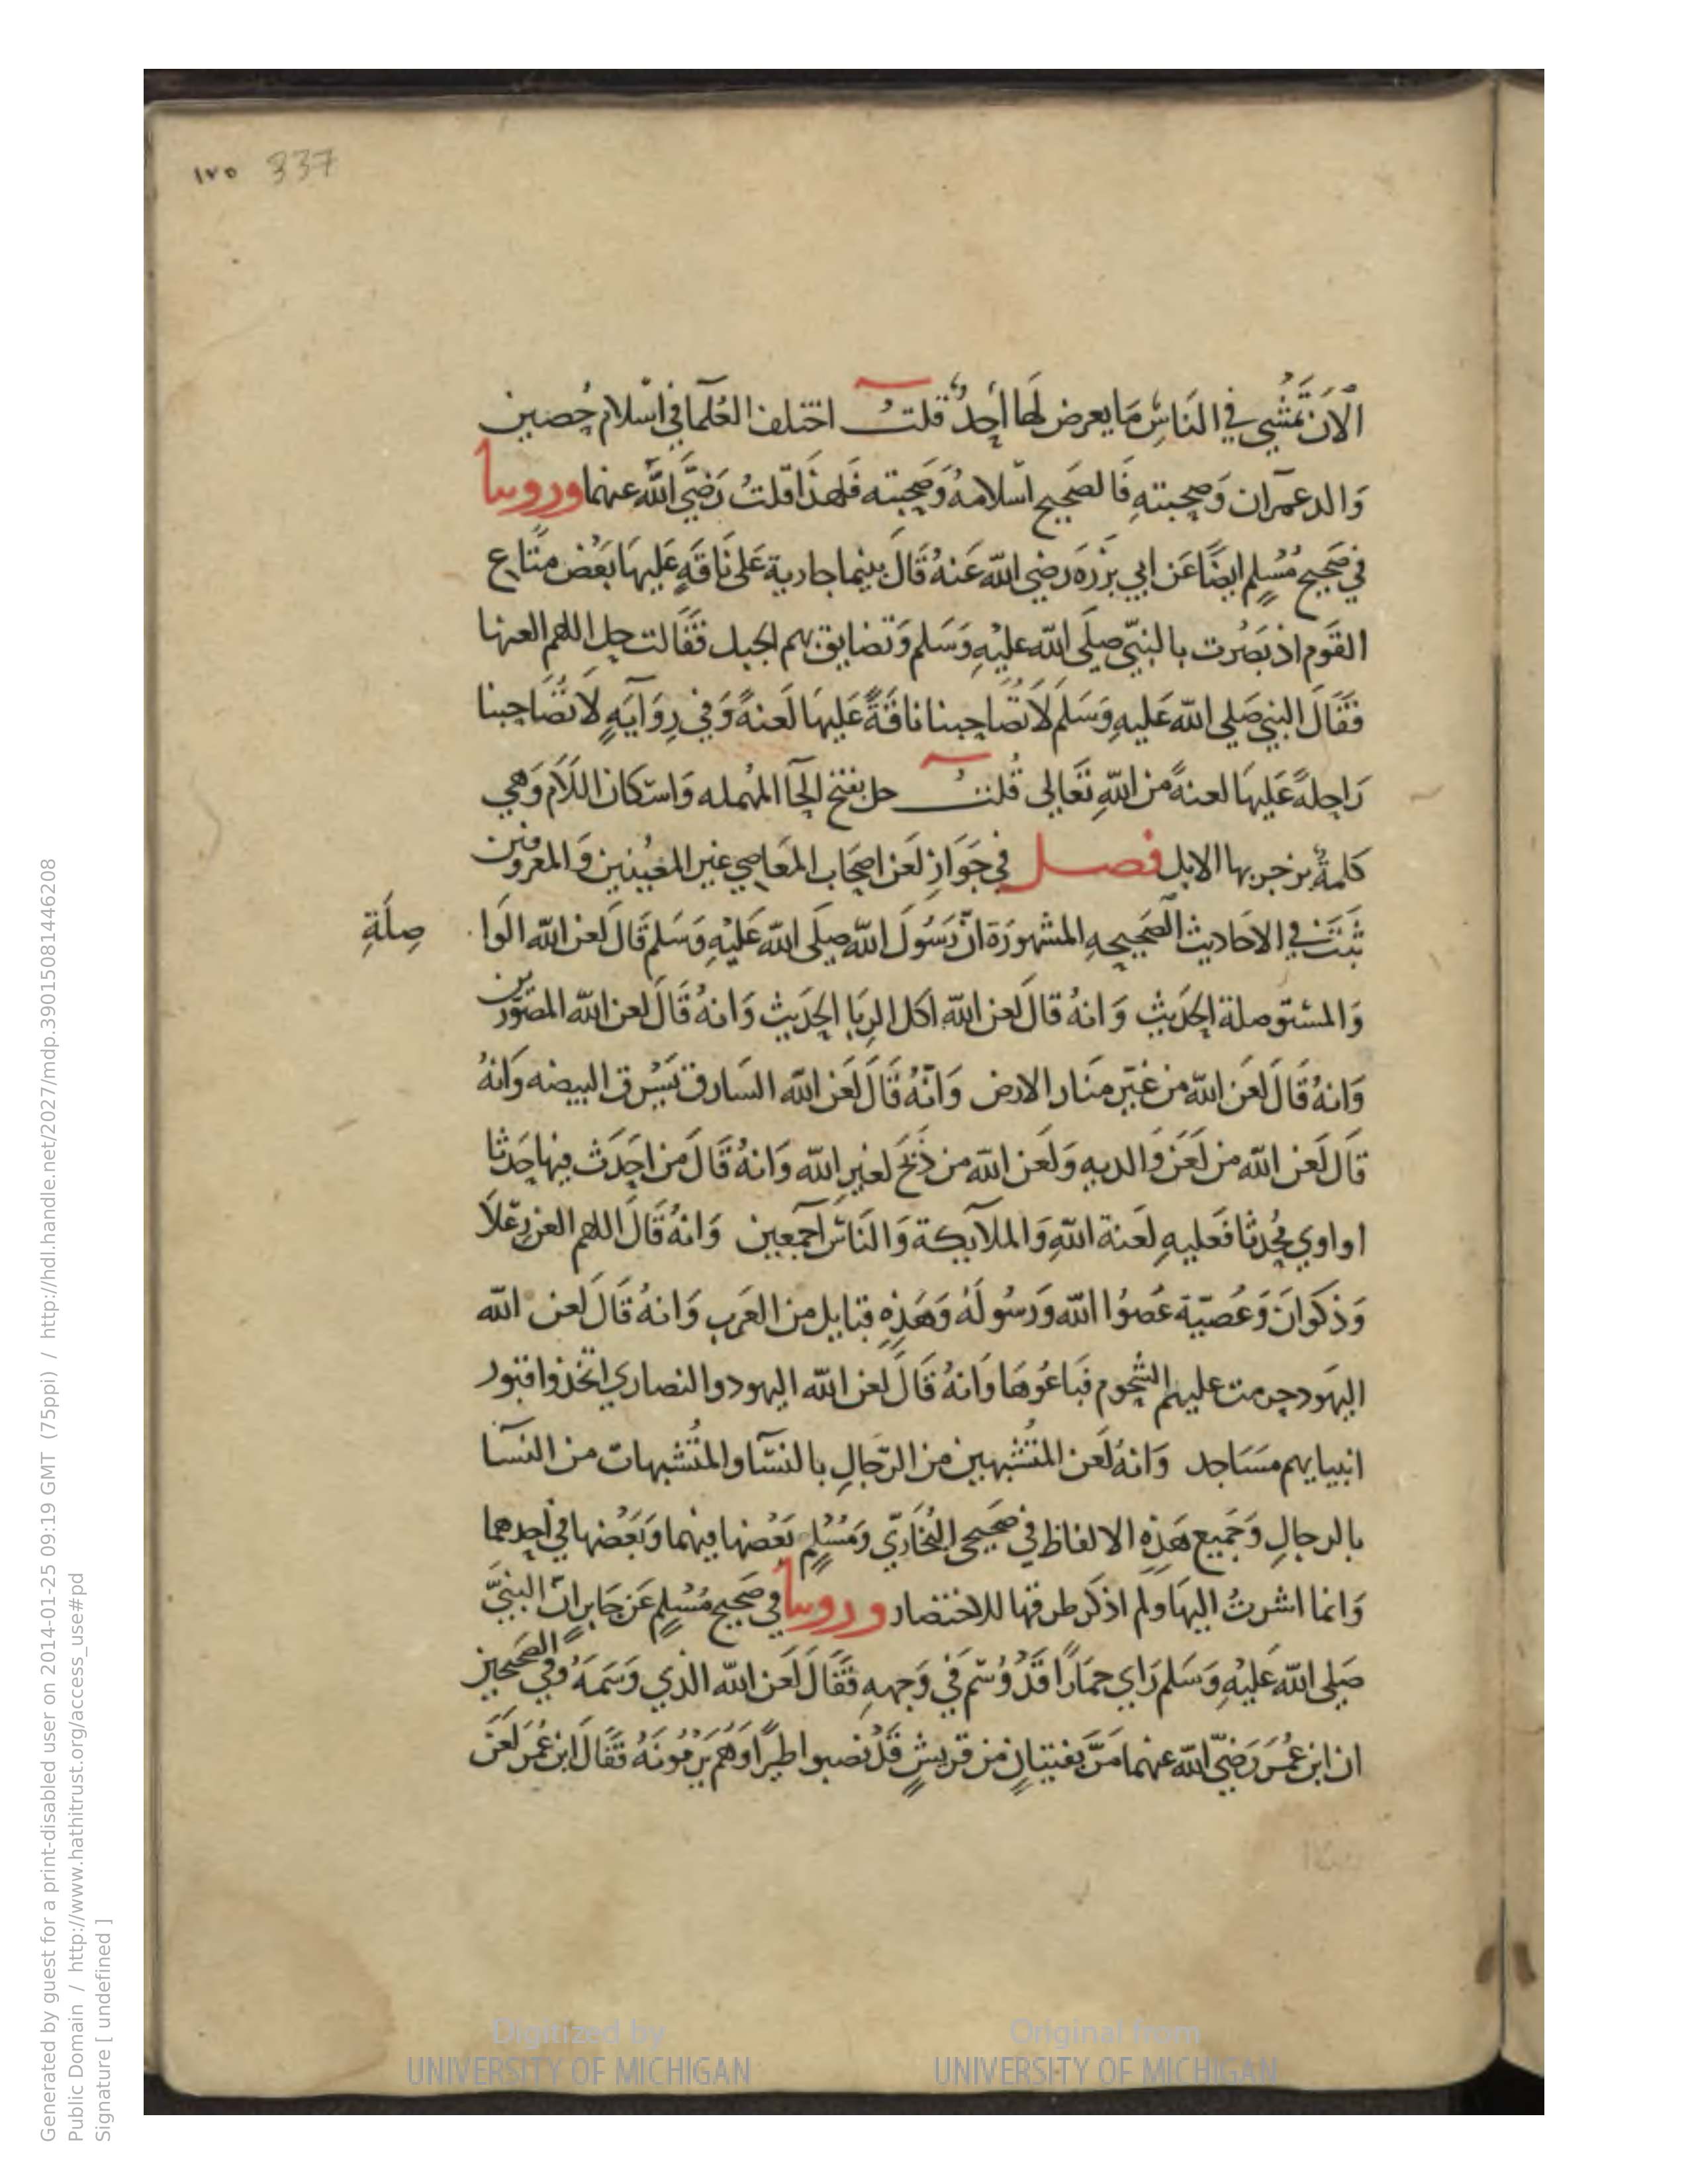 ١٧٥ 337
الآن تَمشي في الناسِ مَا يعرض لَها أحدٌ قلتُ اختلف العُلَما في اسْلام حُصين
وَالد عمرَان وَصحبتهِ فَالصَحيح اسْلامهُ وَصُحبته فَلهذَا قلتُ رَضيَ اللَّه عنهما وروينا
في صَحيح مُسْلِم ايضًا عَن ابي بَرْزَه رَضي الله عَنهُ قَالَ بينما جارية عَلى نَاقَةٍ عَليهَا بَعْض مَتَاع
القَوم اذ بَصُرت بالنبيّ صلَى الله عليْهِ وَسَلم وَتضايق بهم الجبل فقَالت حل اللهم العنها
فَقَالَ النبي صَلى الله عَليهِ وَسَلم لاَ تُصَاحبنا ناقَةٌ عَليهَا لَعنةٌ وَفي رِوَايَهٍ لاَ تُصَاحبنا
رَاحلةٌ عَليهَا لعنةٌ من اللهِ تَعَالى قُلتُ حل بفتح الحَا المُهمله وَاسْكان اللاَم وَهي
كَلمةٌ يزجر بها الابل فصل في جَوَازِ لَعَن اصحَاب المعَاصي غير المعَينين وَالمعروفين
ثَبتَ في الاحَاديث الصَحيحهِ المشهورَة انّ رَسُول الله صلى الله عَليْهِ وَسَلم قَال لعن الله الوَا
صِلَةِ
وَالمستوصلة الحَديث وَانهُ قالَ لعن الله اكل الرِبَا الحَديث وَانهُ قَالَ لعن الله المصَوّرين
وَانهُ قَالَ لعَن الله من غيّر منَار الارض وَانّهُ قَالَ لَعَن الله السَارق يَسْرق البيضه وَانهُ
قَال لَعن الله من لَعَن وَالديهِ وَلَعن الله من ذبَحَ لغير الله وَانهُ قَالَ من احدَث فيهَا حَدَثا
او اوي مُحْدثا فَعليهِ لَعنة اللهِ وَالملاَيكة وَالنَاس اَجمَعين وَانهُ قَالَ اللهم العن رعلاَ
وَذكوَان وَعُصيّة عَصَوُا الله وَرسُولَهُ وَهَذِهِ قبَايل من العَرب وَانهُ قَالَ لَعن الله
اليَهود حرمت عليهم الشُحوم فَبَاعُوهَا وَانهُ قَال لَعن الله اليهود والنصاري اتخذوا قبور
انبيايهم مسَاجد وَانهُ لَعن المتُشَبهين من الرّجالِ بالنسَا والمتُشبهات من النسَا
بالرجالِ وَجَميع هَذِهِ الالفاظ في صَحيحي البُخَاريّ وَمُسْلِم بَعْضهَا فيهما وَبَعْضهَا في احدهما
وَانما اشرتُ اليهَا ولم اذكر طرقها للاختصار وروينا في صَحيح مُسْلِم عَن جَابر انّ النبيَّ
صَلى الله عَليْهِ وَسَلم رَاي حمَارًا قدْ وُسم في وَجههِ فَقَالَ لَعَن الله الذي وَسَمَهُ وفي الصَحيحين
ان ابن عُمَر رَضيَ الله عنهما مَرّ بفتيانٍ من قريشٍ قَدْ نصبوا طيرًا وَهُم يَرْمُونَهُ فقَالَ ابن عُمَر لَعَن
Generated by guest for a print-disabled user on 2014-01-25 09:19 GMT (75ppi) / http://hdl.handle.net/2027/mdp.39015081446208
Public Domain / http://www.hathitrust.org/access_use#pd
Signature [ undefined ]
Digitized by
UNIVERSITY OF MICHIGAN
Original from
UNIVERSITY OF MICHIGAN